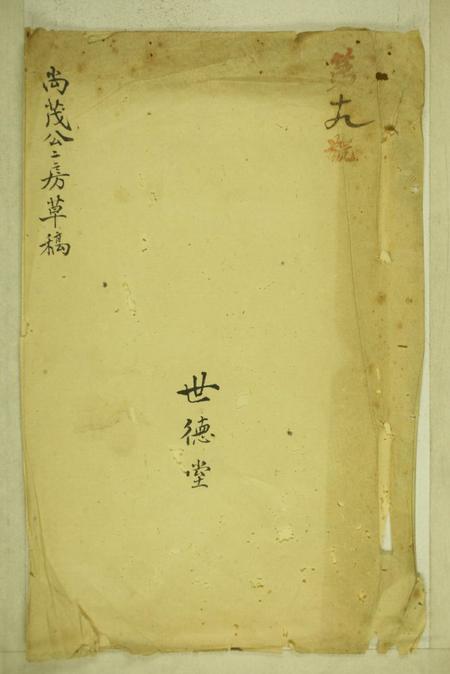 第九號
世德堂
尚茂公二房草稿